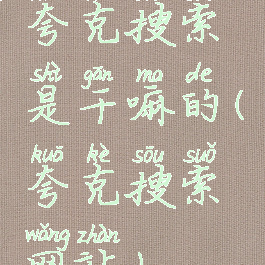 夸克搜索
shì gān ma de
是干嘛的(
kuā kè sōu suǒ
夸克搜索
wǎng zhàn
网站)